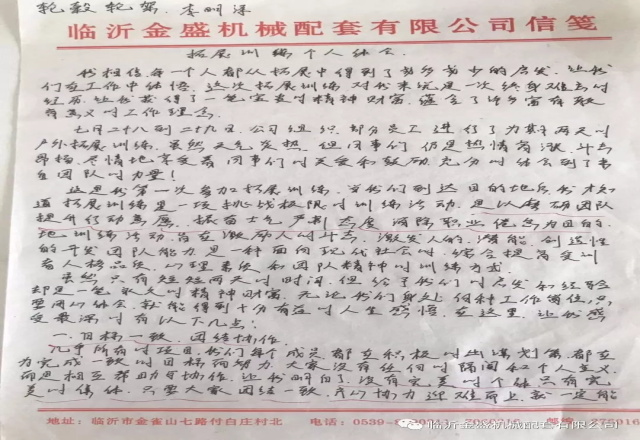 轮毂轮驾 李明深
临沂金盛机械配套有限公司信笺
拓展训练个人体会
我相信每一个人都从拓展中得到了或多或少的启发,让我
们在工作中体悟,这次拓展训练对我来说是一次终身难忘的
经历,让我获得了一笔宝贵的精神财富,蕴含了许多富有教
育意义的工作理念。
七月二十八到二十九日,公司组织部分员工进行了为期两天的
户外拓展训练,虽然天气炎热,但同事们仍是热情高涨,斗志
昂扬,尽情地享受着同事们的关爱和鼓励,充分的体会到了来
自团队的力量!
这是我第一次参加拓展训练,当我们到达目的地后我才知
道拓展训练是一项挑战极限的训练活动,是以磨砺团队
提升行动 为, 振奋士气,严制态度,消除职业倦怠为目的
地训练活动,旨在激励人的斗志,激发人的潜能,创造性
的开发团队能力,是一种面向现代社会的,综合提高受训
者人格品质,心理素质和团队精神的训练方式。
虽然只有短短两天的时间,但给了我们的启发和经验
却是一笔永久的精神财富,无论我们身处何种工作岗位,只
要用心体会,就能得到十分有益的人生感悟,在这里,让我感
受最深的有以下几点:
一、目标一致,团结协作。
几乎所有的项目,我们每个成员都立积极的出谋划策,都立
为完成一致的目标而努力,大家没有任何的隔阂和个人主义,
而是相互帮助与协作,让我明白了,没有完美的个体只有完
美的集体,只要大家团结一致,齐心协力,迎难而上,就一定能
地址:临沂市金雀山七路付白庄村北 电话:0539- 邮编:
临沂金盛机械配套有限公司